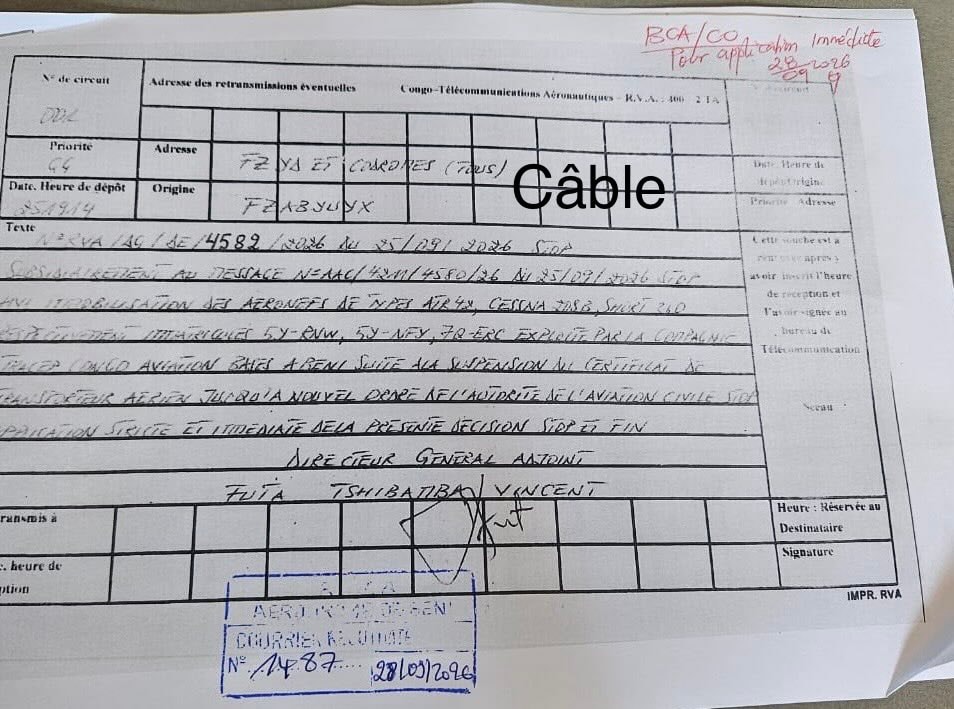 BCA/CO
Pour application Immédiate
28/09 2026
N° de circuit
Adresse des retransmissions éventuelles
Congo-Télécommunications Aéronautiques - R.V.A. : 400 - 2 TA
Priorité
GG
Adresse
FZ YA ET COARDMES (TOUS)
Câble
Date. Heure de
dépôt/Origine
Date. Heure de dépôt
251914
Origine
FZABYUYX
Priorité Adresse
Texte
N° RVA/DG/DE/4582/2026 DU 25/09/2026 STOP
SUBSIDIAIREMENT AU MESSAGE N=AAC/4211/4580/26 DU 25/09/2026 STOP
IMMOBILISATION DES AERONEFS DE TYPES ATR42, CESSNA 208B, SHORT 360
RESPECTIVEMENT IMMATRICULES 5Y-RNW, 5Y-NFY, 7Q-ERC EXPLOITE PAR LA COMPAGNIE
TRACEP CONGO AVIATION BASES A BENI SUITE A LA SUSPENSION DU CERTIFICAT DE
TRANSPORTEUR AERIEN JUSQU'A NOUVEL ORDRE DE L'AUTORITE DE L'AVIATION CIVILE STOP
APPLICATION STRICTE ET IMMEDIATE DE LA PRESENTE DECISION STOP ET FIN
DIRECTEUR GENERAL ADJOINT
FUTA TSHIBAMBA VINCENT
Cette souche est à
après
avoir inscrit l'heure
de réception et
l'avoir signée au
bureau de
Télécommunication
Sceau
ransmis à
Heure : Réservée au
Destinataire
c. heure de
ption
Signature
IMPR. RVA
AERODROME DE BENI
COURRIER RECU
N° 1487 28/09/2026